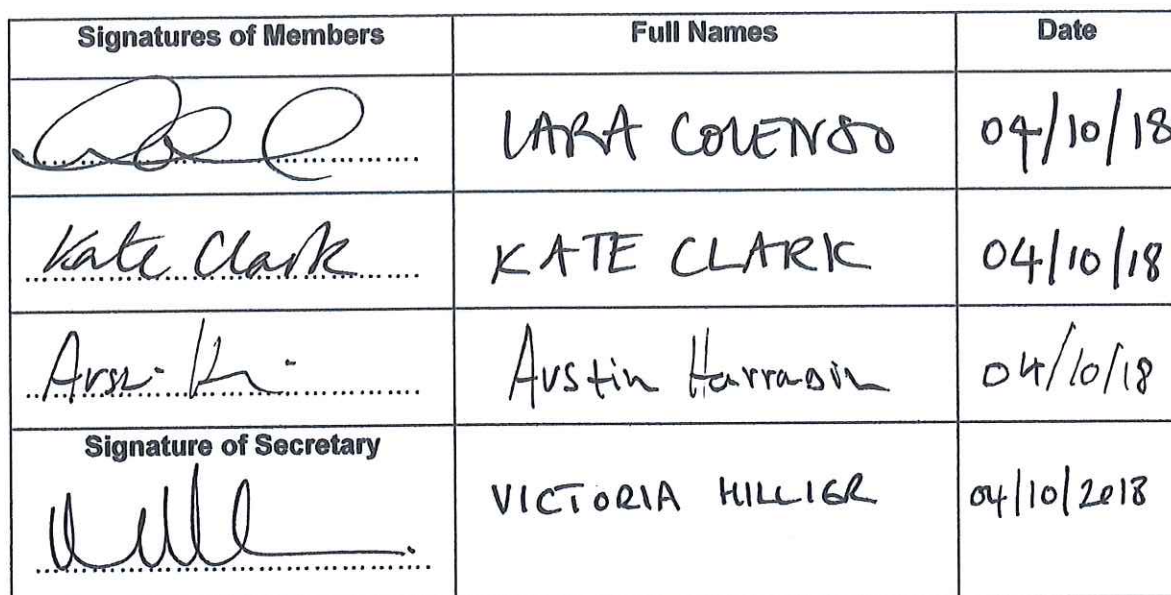 Signatures of Members Full Names Date
LARA COLENSO 04/10/18
Kate Clark KATE CLARK 04/10/18
Austin Harrasin 04/10/18
Signature of Secretary
VICTORIA HILLIER 04/10/2018